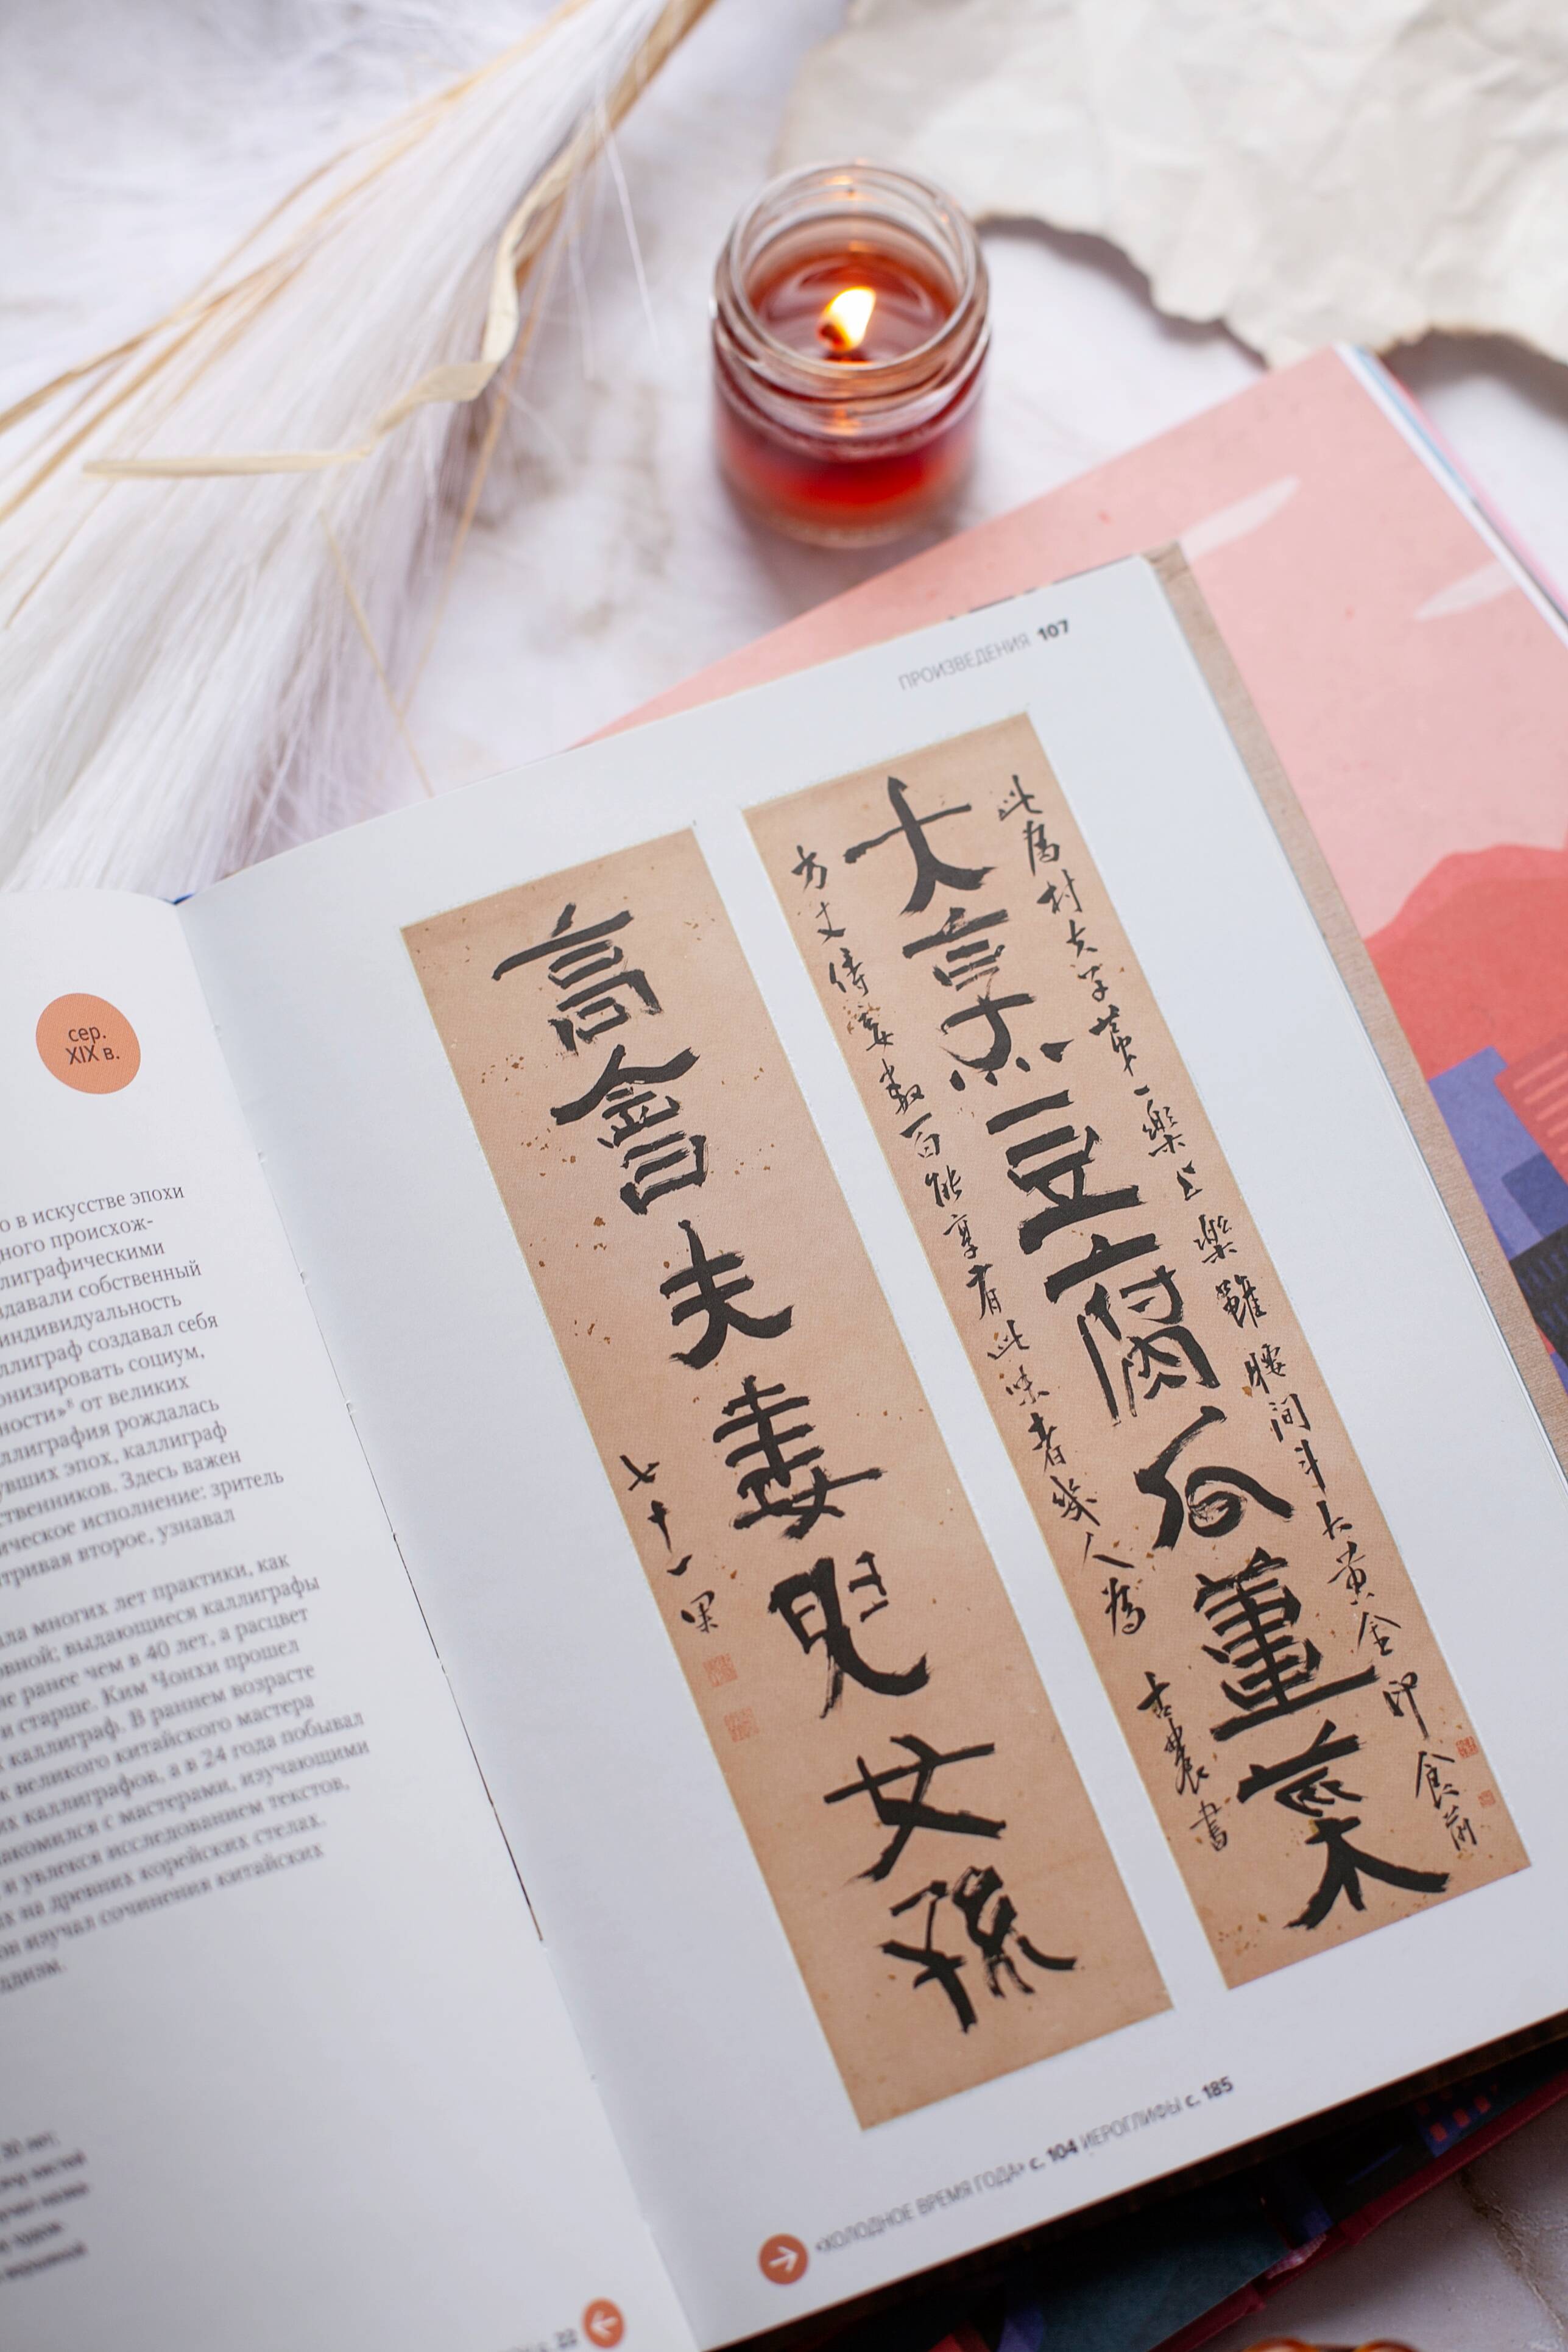 сер.
XIX в.
о в искусстве эпохи
ного происхож-
лиграфическими
здавали собственный
индивидуальность
ллиграф создавал себя
онизировать социум,
ности»⁸ от великих
ллиграфия рождалась
увших эпох, каллиграф
ственников. Здесь важен
ическое исполнение: зритель
тривая второе, узнавал
ла многих лет практики, как
овной; выдающиеся каллиграфы
не ранее чем в 40 лет, а расцвет
и старше. Ким Чонхи прошел
к каллиграф. В раннем возрасте
к великого китайского мастера
их каллиграфов, а в 24 года побывал
накомился с мастерами, изучающими
и увлекся исследованием текстов,
х на древних корейских стелах.
он изучал сочинения китайских
ддизм.
ПРОИЗВЕДЕНИЯ 107
此為村夫子第一樂上樂雖腰間斗大黃金印食前
大烹豆腐瓜薑菜
方丈侍妾數百能享有此味者幾人為
古農書
高會夫妻兒女孫
七十一果
«ХОЛОДНОЕ ВРЕМЯ ГОДА» с. 104 ИЕРОГЛИФЫ с. 185